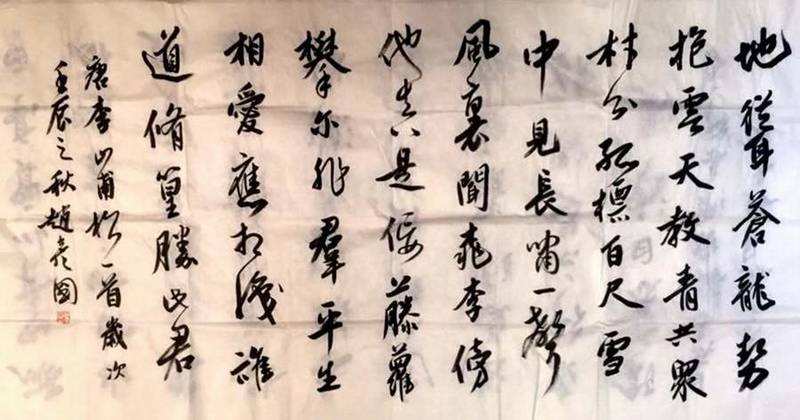 地聳蒼龍勢
抱雲天教青共眾
材分孤標百尺雪
中見長嘯一聲
風裏聞桃李傍
他真是佞藤蘿
攀尔非羣平生
相愛應相識誰
道脩篁勝此君
唐李山甫松一首歲次
壬辰之秋趙彥國